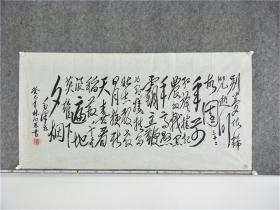 别梦依稀
咒逝川
故园三十二
年前
红旗卷起
农奴戟黑
手高悬
霸主鞭
为有牺牲多
壮志敢教
日月换新
天喜看
稻菽千重
浪遍地
英雄下
夕烟